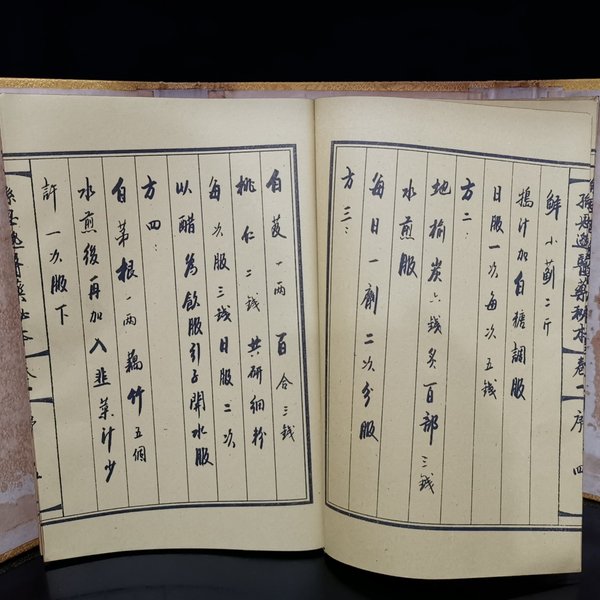 孫思邈醫藥秘本 卷一 序 四
鮮小薊二斤
搗汁加白糖調服
日服一次每次五錢
方二：
地榆炭六錢炙百部三錢
水煎服
每日一劑二次分服
方三：
白芨一兩 百合三錢
桃仁二錢 共研細粉
每次服三錢日服二次
以醋為飲服引子開水服
方四：
白茅根一兩 藕竹五個
水煎後再加入韭菜汁少
許一次服下
孫思邈醫藥